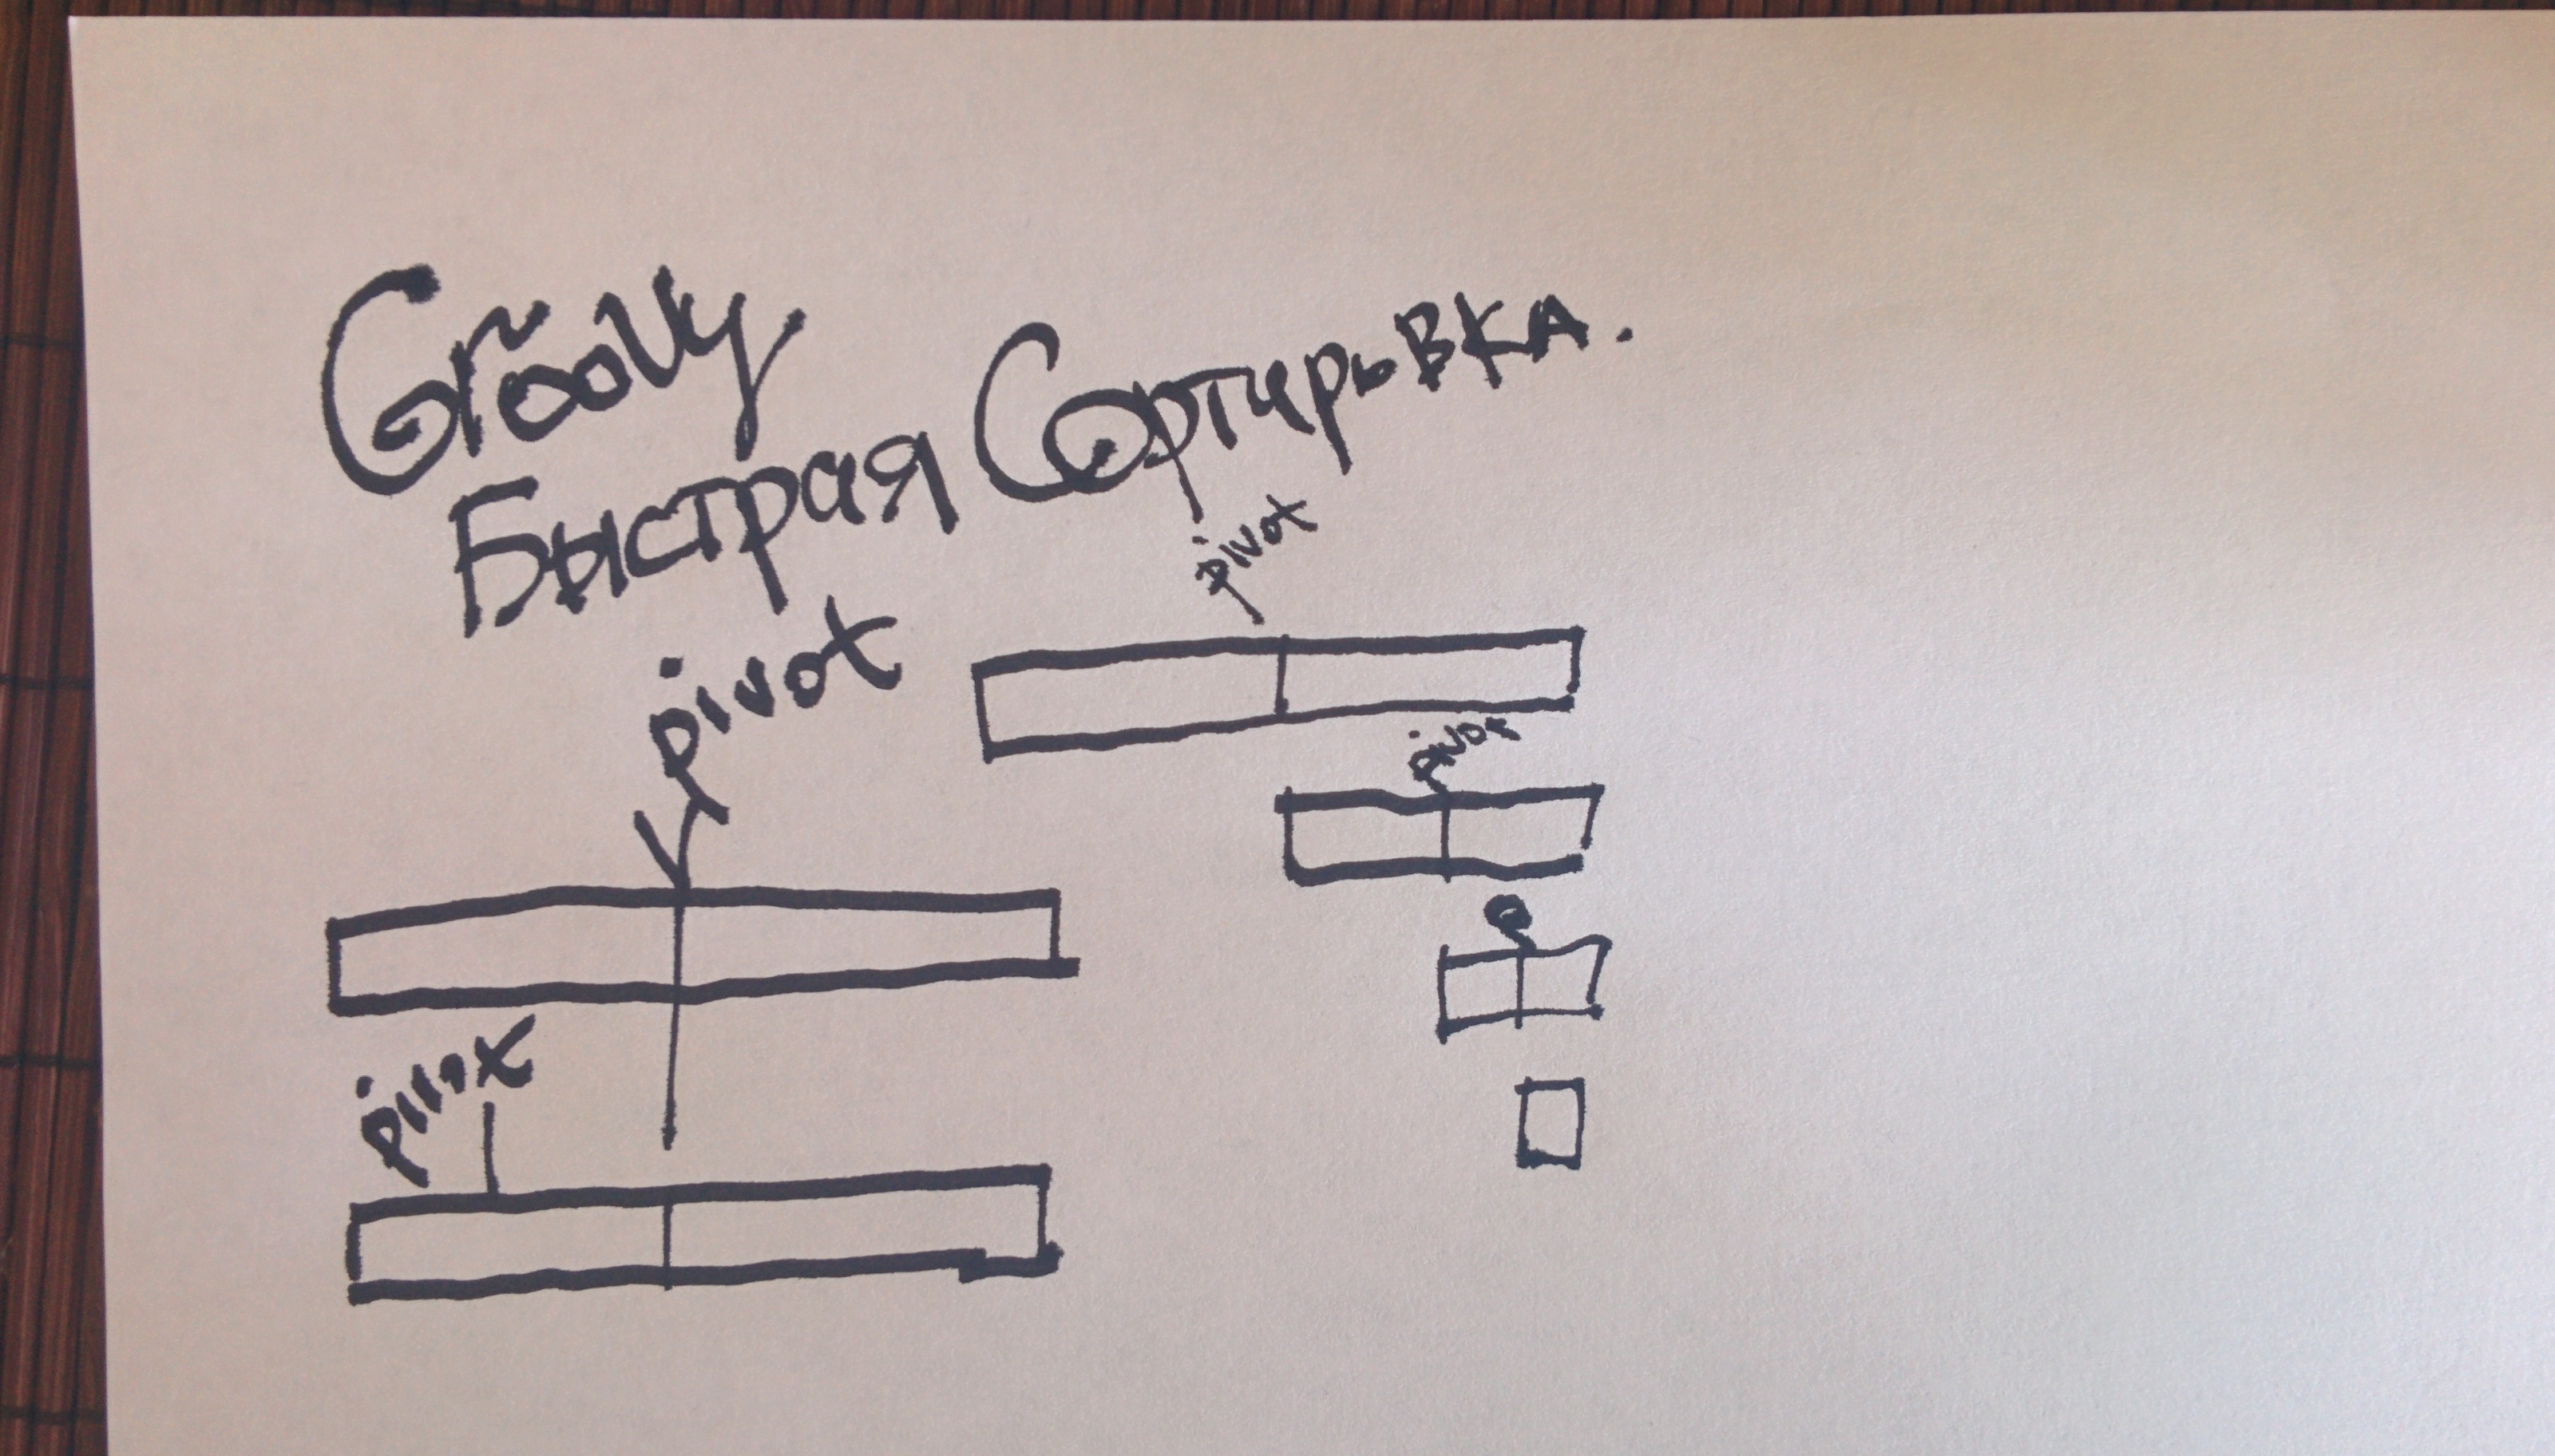 Groovy
Быстрая Сортировка.
pivot
pivot
pivot
pivot